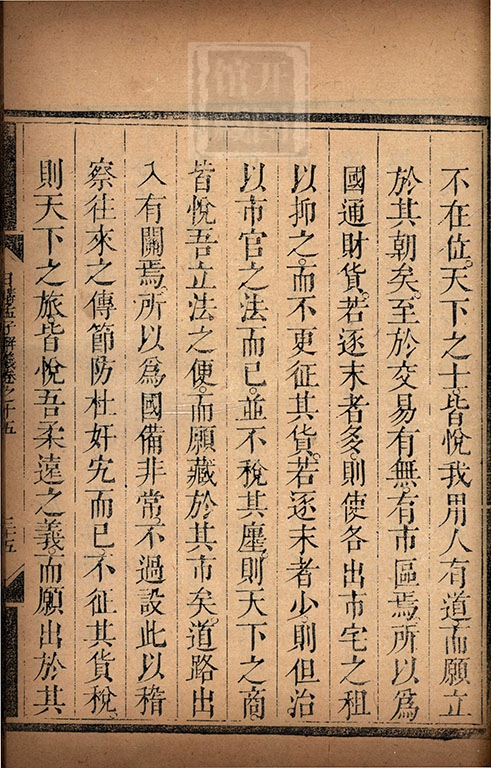 不在位。天下之士皆悅我用人有道。而願立
於其朝矣。至於交易有無。有市區焉。所以爲
國通財貨。若逐末者多。則使各出市宅之租
以抑之。而不更征其貨。若逐末者少。則但治
以市官之法而已。並不稅其廛。則天下之商
皆悅吾立法之便。而願藏於其市矣。道路出
入有關焉。所以爲國備非常。不過設此以稽
察往來之傳節。防杜奸宄而已。不征其貨稅。
則天下之旅皆悅吾柔遠之義。而願出於其
日講孟子解義卷之十五
三十五